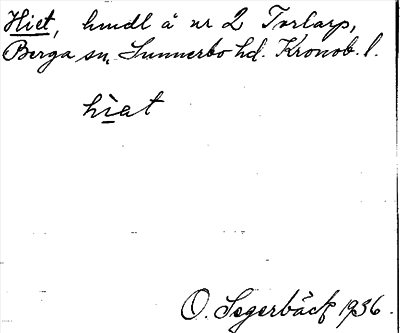 Hiet, hmdl å nr 2 Torlarp,
Berga sn, Sunnerbo hd. Kronob. l.
hìat
O. Segerbäck 1936.